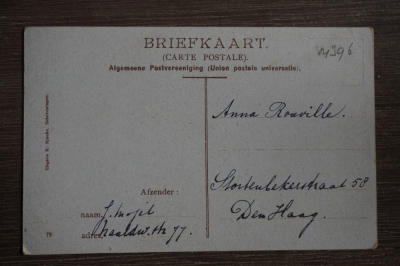 BRIEFKAART.
(CARTE POSTALE).
Algemeene Postvereeniging (Union postale universelle).
14396
Anna Rouville.
Stortenbekerstraat 58
Den Haag.
Afzender :
naam,
adres, 77
Uitgave Scheveningen.
79